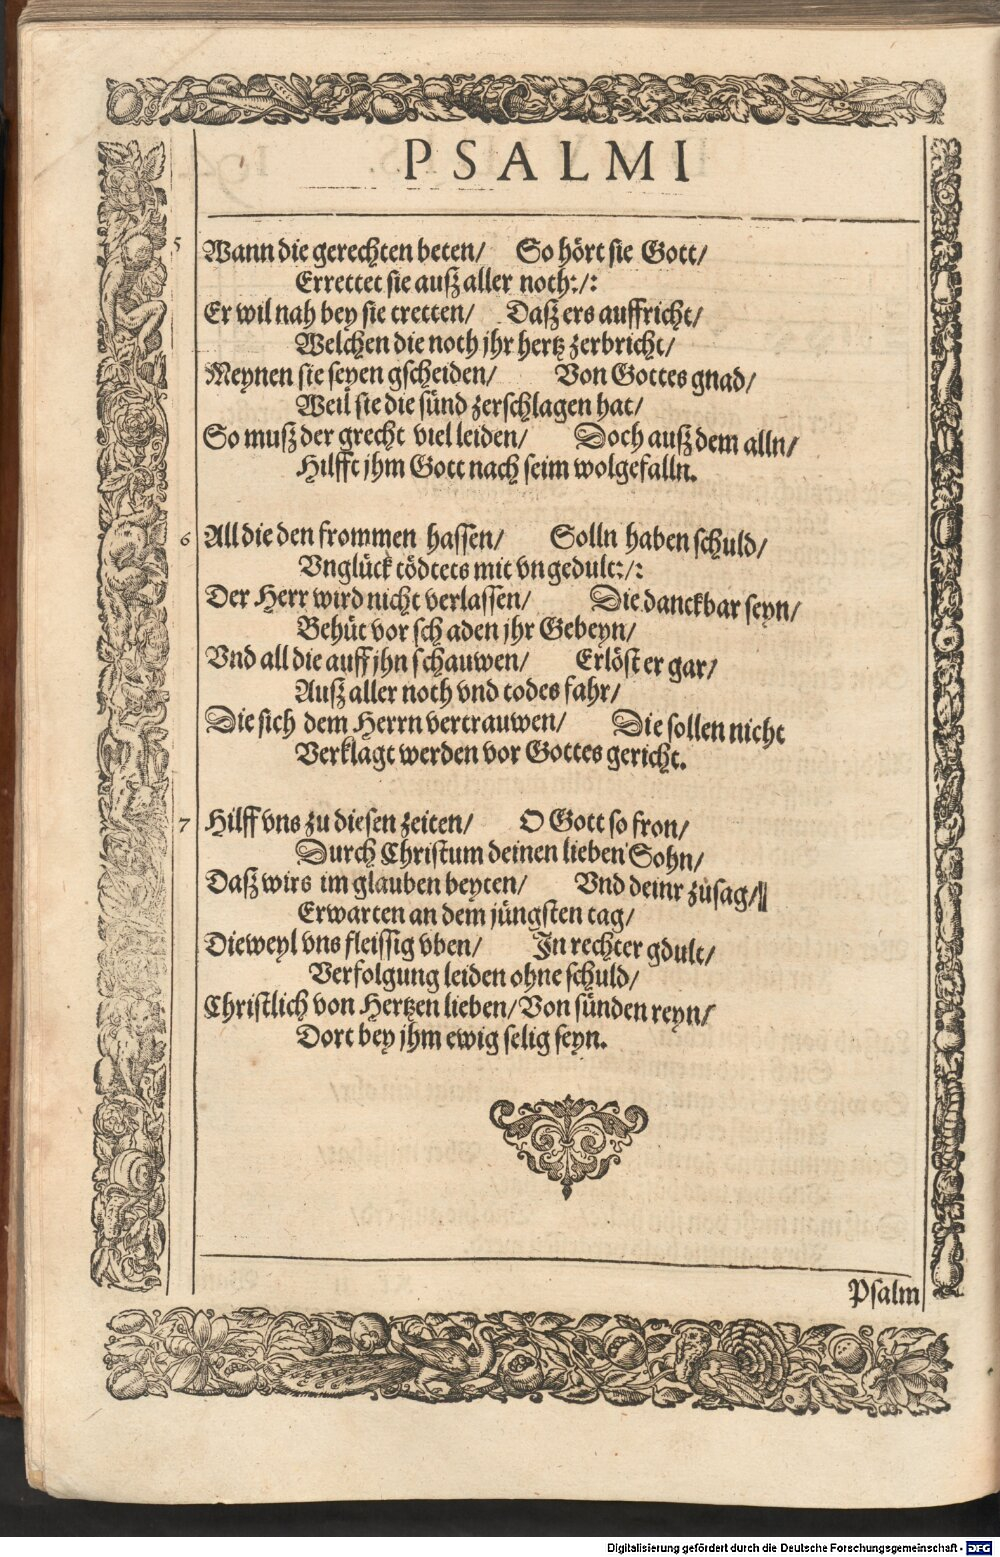 PSALMI
5 Wann die gerechten beten/ So hört sie Gott/
Errettet sie auß aller noth:/:
Er wil nah bey sie tretten/ Daß ers auffricht/
Welchen die noth jhr hertz zerbricht/
Meynen sie seyen gscheiden/ Von Gottes gnad/
Weil sie die sünd zerschlagen hat/
So muß der grecht viel leiden/ Doch auß dem alln/
Hilfft jhm Gott nach seim wolgefalln.
6 All die den frommen hassen/ Solln haben schuld/
Vnglück tödtets mit vngedult:/:
Der Herr wird nicht verlassen/ Die danckbar seyn/
Behüt vor schaden jhr Gebeyn/
Vnd all die auff jhn schauwen/ Erlöst er gar/
Auß aller noth vnd todes fahr/
Die sich dem Herrn vertrauwen/ Die sollen nicht
Verklagt werden vor Gottes gericht.
7 Hilff vns zu diesen zeiten/ O Gott so fron/
Durch Christum deinen lieben Sohn/
Daß wirs im glauben beyten/ Vnd deinr zusag/
Erwarten an dem jüngsten tag/
Dieweyl vns fleissig vben/ In rechter gdult/
Verfolgung leiden ohne schuld/
Christlich von Hertzen lieben/ Von sünden reyn/
Dort bey jhm ewig selig seyn.
Psalm
Digitalisierung gefördert durch die Deutsche Forschungsgemeinschaft - DFG